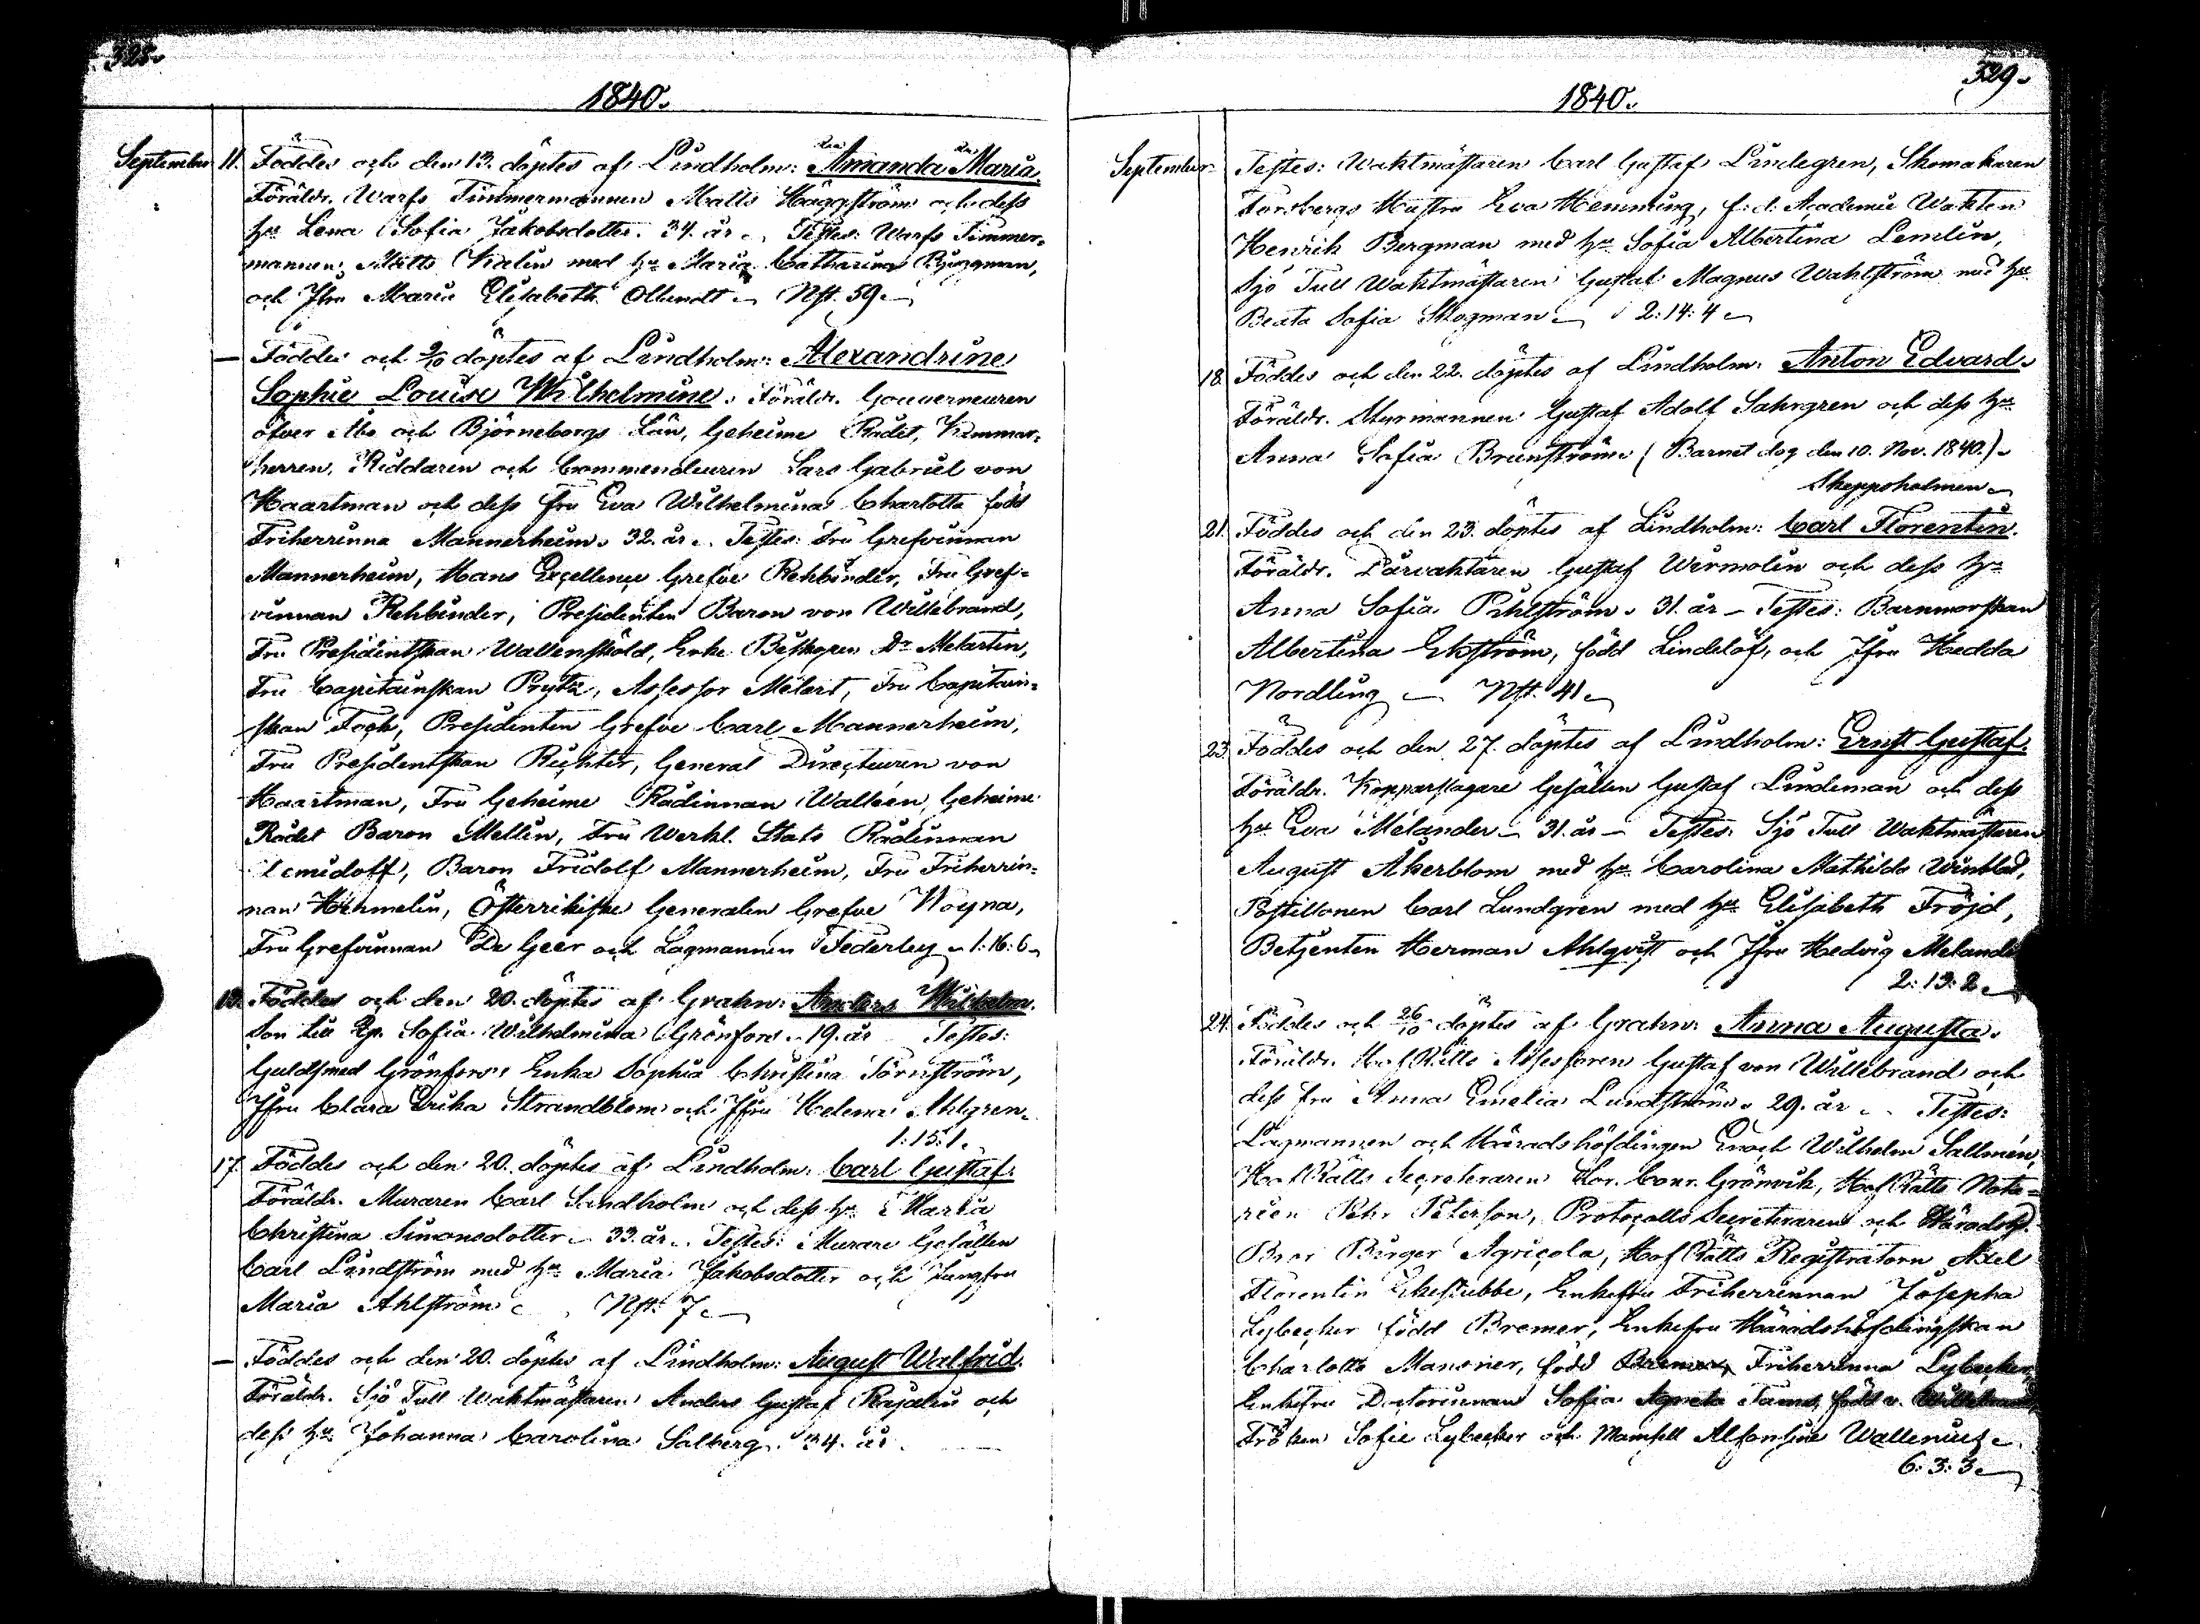 328.
1840.
September 11. Föddes och den 13. döptes af Lindholm: Amanda Maria.
Föräldr. Warfs Timmermannen Matts Häggström och dess
hu Lena Sofia Jakobsdotter. 34. år. Testes: Warfs Timmer-
mannen Matts Kalin med hu Maria Catharina Bjurgman,
och Jfru Maria Elisabeth Nft. 59.
— Föddes och 9/10 döptes af Lindholm: Alexandrine
Sophie Louise Wilhelmine. Föräldr. Gouverneuren
öfver Åbo och Björneborgs Län, Geheime Rådet, Kammar-
herren, Riddaren och Commendeuren Lars Gabriel von
Haartman och dess fru Eva Wilhelmina Charlotta född
Friherrinna Mannerheim. 32. år. Testes: Fru Grefvinnan
Mannerheim, Hans Excellence Grefve Rehbinder, Fru Gref-
vinnan Rehbinder, Presidenten Baron von Willebrand,
Fru Presidentskan Wallensköld, Erke Biskopen Dr Melartin,
Fru Capitainskan Prytz, Assessor Melart, Fru Capitain-
skan Fock, Presidenten Grefve Carl Mannerheim,
Fru Presidentskan Richter, General Directeuren von
Haartman, Fru Geheime Rådinnan Walleen, Geheime
Rådet Baron Mellin, Fru Werkl. Stats Rådinnan
Demidoff, Baron Fridolf Mannerheim, Fru Friherrin-
nan Hermelin, Österrikiske Generalen Grefve Woyna,
Fru Grefvinnan De Geer och Lagmannen Federley. 1:16:6
13. Föddes och den 20. döptes af Grahn: Anders Wilhelm.
Son till Sofia Wilhelmina Grönfors. 19. år Testes:
Guldsmed Grönfors, Enka Sophia Christina Törnström,
Jfru Clara Erika Strandblom och Jfru Helena Ahlgren.
1:15:1.
17. Föddes och den 20. döptes af Lindholm: Carl Gustaf.
Föräldr. Muraren Carl Sandholm och dess hu Maria
Christina Simonsdotter. 33. år. Testes: Murare Gesällen
Carl Lindström med hu Maria Jakobsdotter och Jungfru
Maria Ahlström Nft. 7.
— Föddes och den 20. döptes af Lindholm: August Walfrid.
Föräldr. Sjö Tull Waktmästaren Anders Gustaf Rajalin och
dess hu Johanna Carolina Salberg. 34. år.
329.
1840.
September Testes: Waktmästaren Carl Gustaf Lindegren, Skomakaren
Forsbergs Hustru Eva Hemming, f:d: Academie Wakten
Henrik Bergman med hu Sofia Albertina Lemlin,
Sjö Tull Waktmästaren Gustaf Magnus Wahlström med hu
Beata Sofia Skogman 2:14:4
18. Föddes och den 22. döptes af Lindholm: Anton Edvard.
Föräldr. Styrmannen Gustaf Adolf Sahrgren och dess hu
Anna Sofia Brunström (Barnet dog den 10. Nov. 1840.)
Skeppsholmen
21. Föddes och den 23. döptes af Lindholm: Carl Florentin.
Föräldr. Dårvaktaren Gustaf Wirmolin och dess hu
Anna Sofia Pihlström. 31. år - Testes: Barnmorskan
Albertina Ekström, född Lindelöf, och Jfru Hedda
Nordling Nft. 41
23. Föddes och den 27. döptes af Lindholm: Ernst Gustaf.
Föräldr. Kopparslagare Gesällen Gustaf Lindeman och dess
hu Eva Melander - 31. år - Testes: Sjö Tull Waktmästaren
August Åkerblom med hu Carolina Mathilda Winblad,
Postillonen Carl Lundgren med hu Elisabeth Fröjd,
Betjenten Herman Ahlqvist och Jfru Hedvig Meland
2:13:2
24. Föddes och 26/10 döptes af Grahn: Anna Augusta.
Föräldr. Hof Rätts Assessoren Gustaf von Willebrand och
dess fru Anna Emelia Lundström. 29. år. Testes:
Lagmannen och Häradshöfdingen Enoch Wilhelm Sallmén,
Hof Rätts Secreteraren Hor. Conr. Grönvik, Hof Rätts Nota-
rien Pehr Peterson, Protocolls Secreteraren och Häradshf.
Bror Birger Agricola, Hof Rätts Registratorn Axel
Florentin Ekestubbe, Enkefru Friherrinnan Josepha
Lybecker född Bremer, Enkefru Häradshöfdingskan
Charlotta Mansner, född Bremer, Friherrinna Lybecker,
Enkefru Doctorinnan Sofia Agneta född v. Willebrand,
Fröken Sofie Lybecker och Mamsell Alfonsine Wallenius.
6:3:3